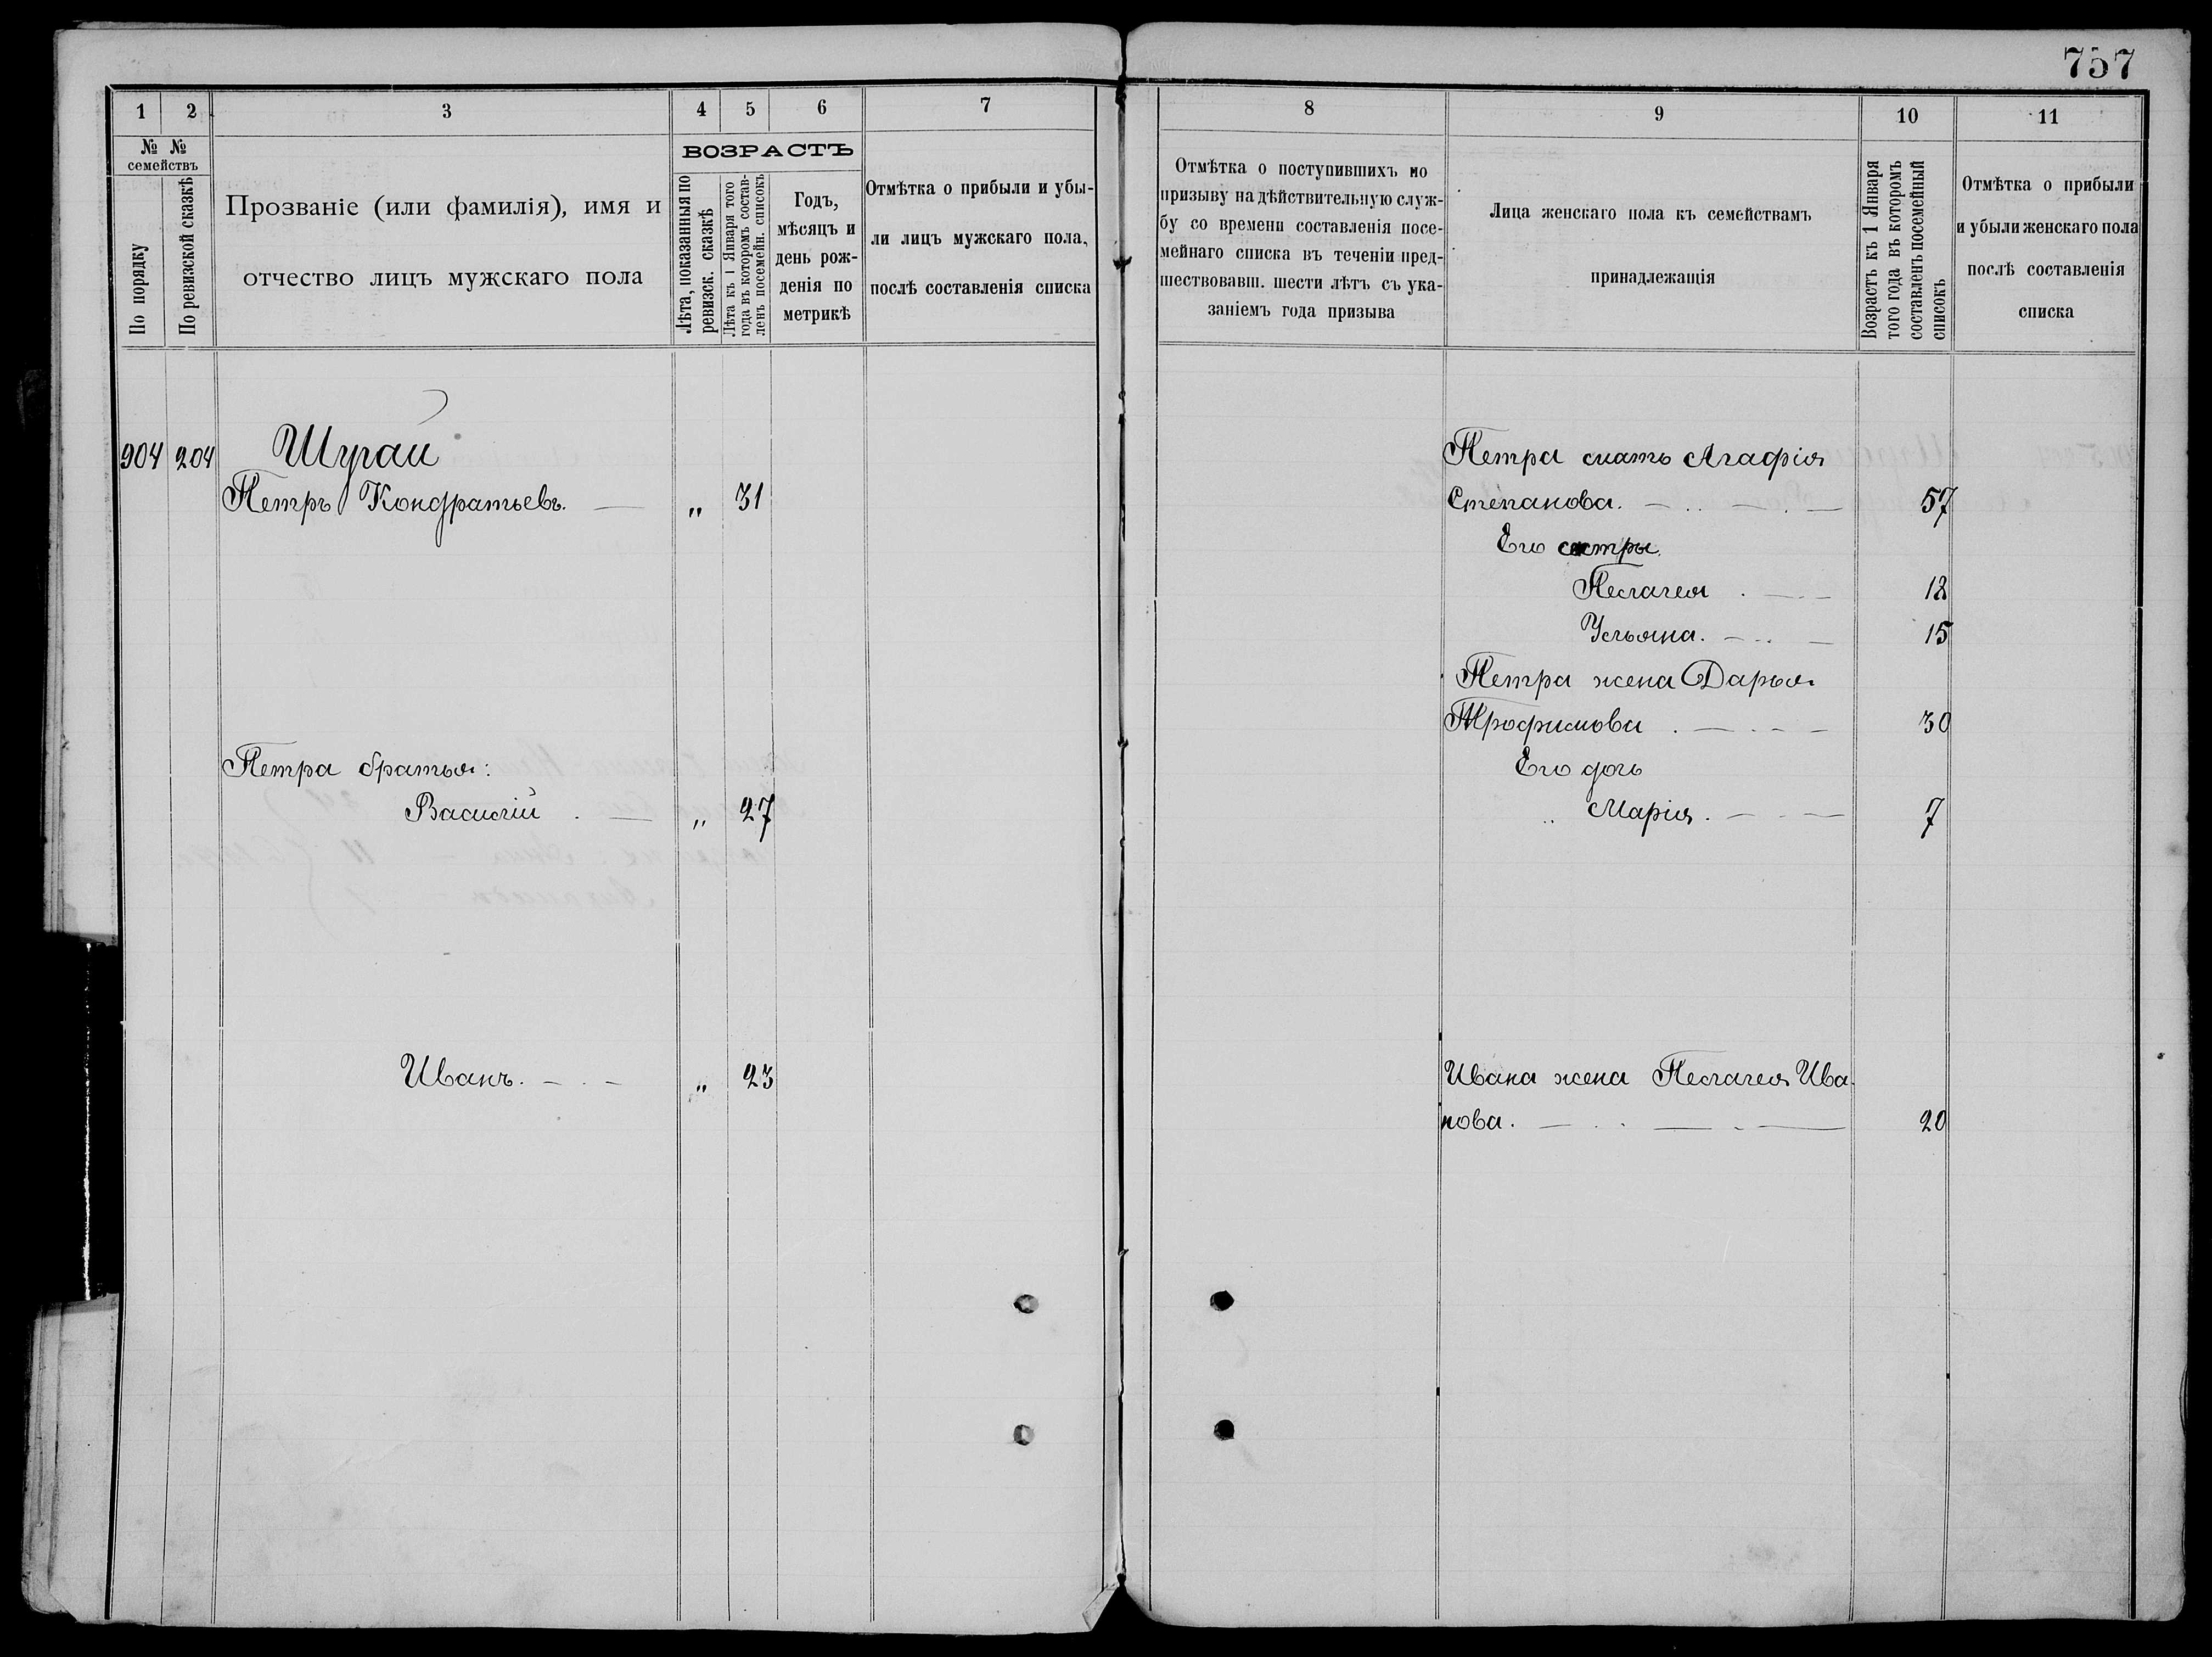 757
1 2 3 4 5 6 7
№ №
семействъ
По порядку
По ревизской сказкѣ
Прозваніе (или фамилія), имя и
отчество лицъ мужскаго пола
ВОЗРАСТЪ
Лѣта, показанныя по
ревизск. сказкѣ
Лѣта къ 1 Января того
года въ которомъ состав-
ленъ посемейн. списокъ
Годъ,
мѣсяцъ и
день рож-
денія по
метрикѣ
Отмѣтка о прибыли и убы-
ли лицъ мужскаго пола,
послѣ составленія списка
904 204 Шурай
Петръ Кондратьевъ. — „ 31
Петра братья:
Василій . — „ 27
Иванъ. — . — „ 23
8 9 10 11
Отмѣтка о поступившихъ по
призыву на дѣйствительную служ-
бу со времени составленія посе-
мейнаго списка въ теченіи пред-
шествовавш. шести лѣтъ съ ука-
заніемъ года призыва
Лица женскаго пола къ семействамъ
принадлежащія
Возрастъ къ 1 Января
того года въ которомъ
составленъ посемейный
списокъ
Отмѣтка о прибыли
и убыли женскаго пола
послѣ составленія
списка
Петра мать Агафія
Степанова. — . . — . — 57
Его сестры
Пелагея . — . — 18
Ульяна. — . . — 15
Петра жена Дарья
Трофимова . — . — — 30
Его дочь
„ Марія. — . — 7
Ивана жена Пелагея Ива-
нова. — . . — . — 20